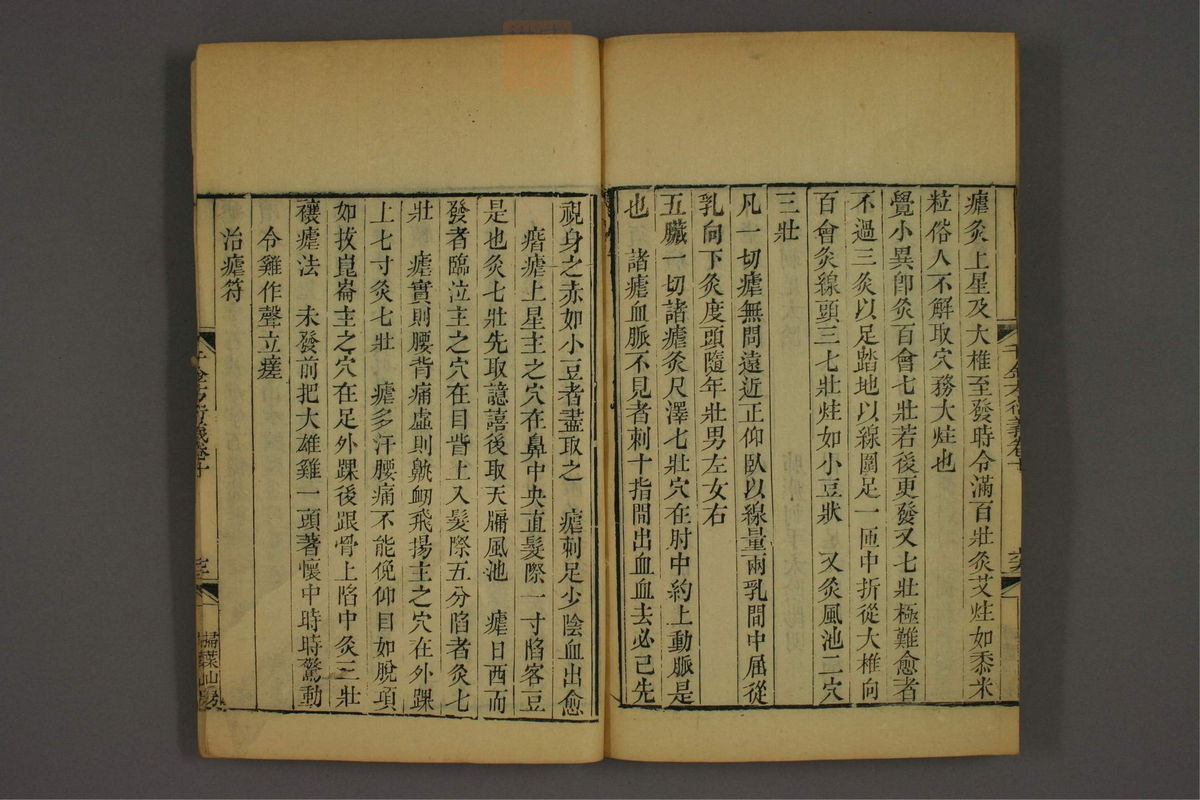 瘧灸上星及大椎至發時令滿百壯灸艾炷如黍米
粒俗人不解取穴務大炷也
覺小異卽灸百會七壯若後更發又七壯極難愈者
不過三灸以足踏地以線圍足一匝中折從大椎向
百會灸線頭三七壯炷如小豆狀　又灸風池二穴
三壯
凡一切瘧無問遠近正仰臥以線量兩乳間中屈從
乳向下灸度頭隨年壯男左女右
五臟一切諸瘧灸尺澤七壯穴在肘中約上動脈是
也　諸瘧血脈不見者刺十指間出血血去必已先
視身之赤如小豆者盡取之　瘧刺足少陰血出愈
㾬瘧上星主之穴在鼻中央直髮際一寸陷容豆
是也灸七壯先取譩譆後取天牖風池　瘧日西而
發者臨泣主之穴在目眥上入髮際五分陷者灸七
壯　瘧實則腰背痛虛則鼽衂飛揚主之穴在外踝
上七寸灸七壯　瘧多汗腰痛不能俛仰目如脫項
如拔崑崙主之穴在足外踝後跟骨上陷中灸三壯
禳瘧法　未發前把大雄雞一頭著懷中時時驚動
令雞作聲立瘥
治瘧符
千金方衍義卷十
掃葉山房